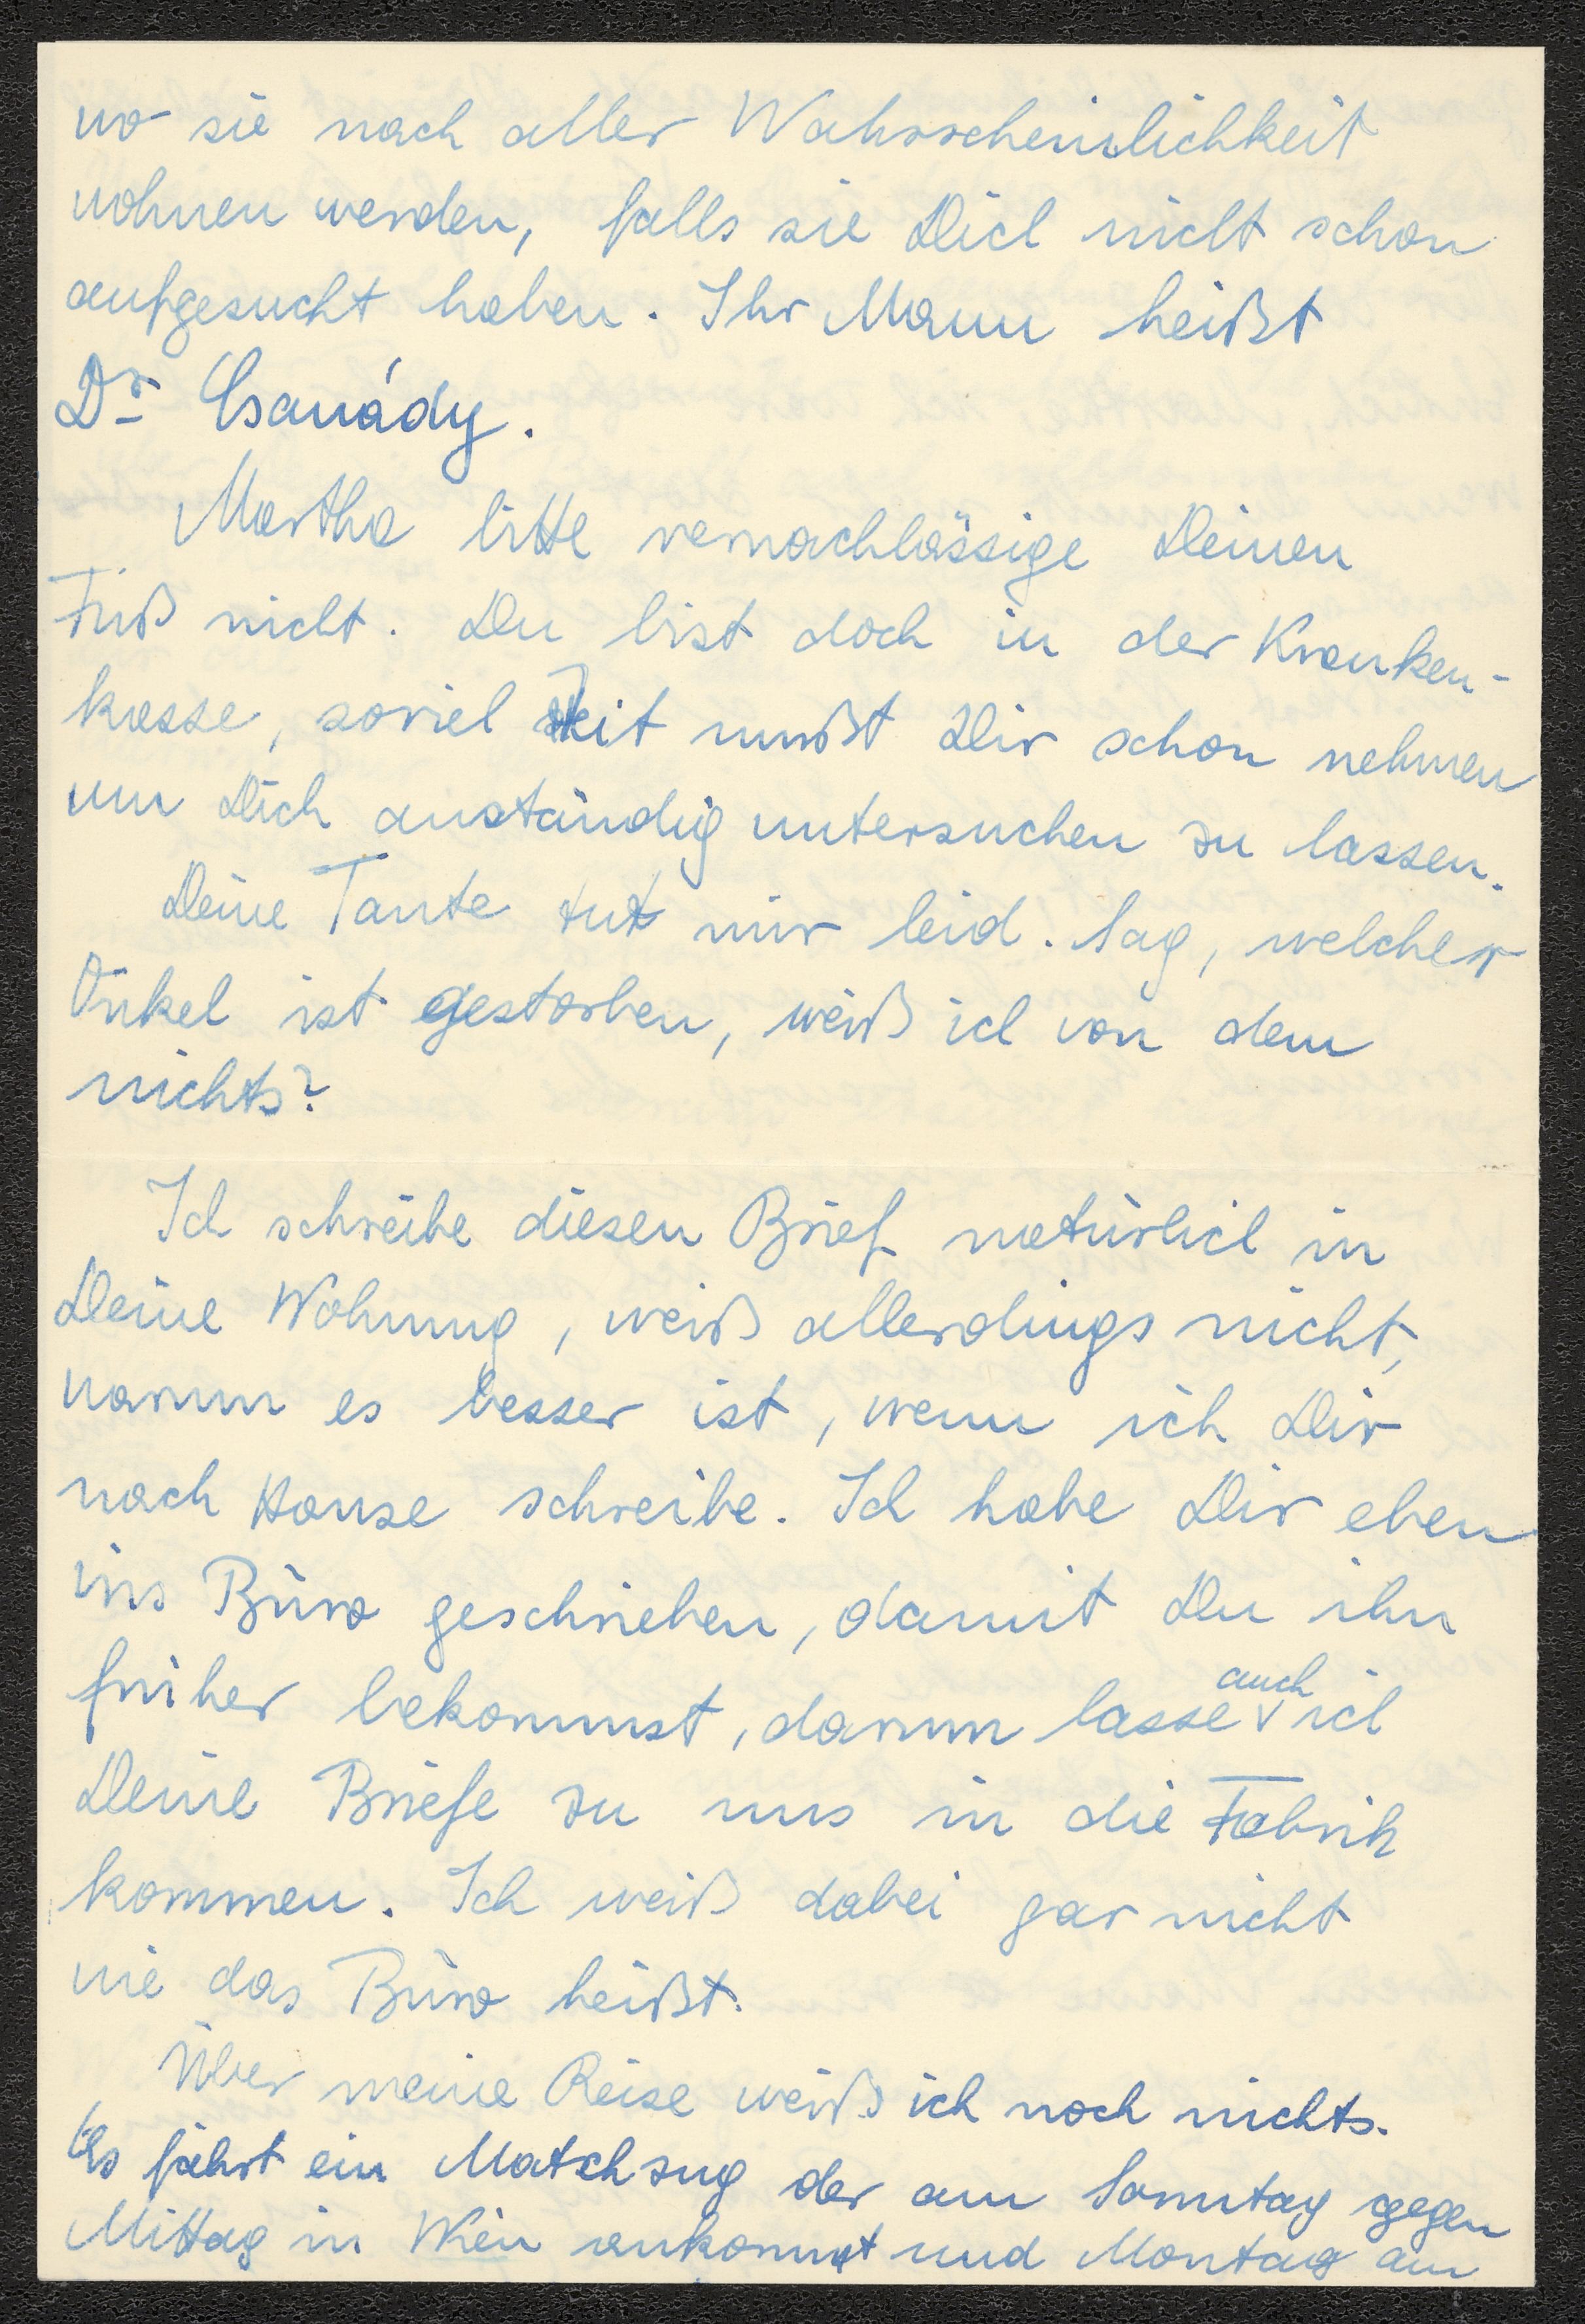 wo sie nach aller Wahrscheinlichkeit
wohnen werden, falls sie Dich nicht schon
aufgesucht haben. Ihr Mann heißt
Dr Csanády.
Martha bitte vernachlässige Deinen
Fuß nicht. Du bist doch in der Kranken-
kasse, soviel Zeit mußt Dir schon nehmen
um Dich anständig untersuchen zu lassen.
Deine Tante tut mir leid. Sag, welcher
Onkel ist gestorben, weiß ich von dem
nichts?
Ich schreibe diesen Brief natürlich in
Deine Wohnung, weiß allerdings nicht,
warum es besser ist, wenn ich Dir
nach Hause schreibe. Ich habe Dir eben
ins Büro geschrieben, damit Du ihn
früher bekommst, darum lasse auch ich
Deine Briefe zu uns in die Fabrik
kommen. Ich weiß dabei gar nicht
wie das Büro heißt.
Über meine Reise weiß ich noch nichts.
Es fährt ein Matschzug der am Sonntag gegen
Mittag in Wien ankommt und Montag am